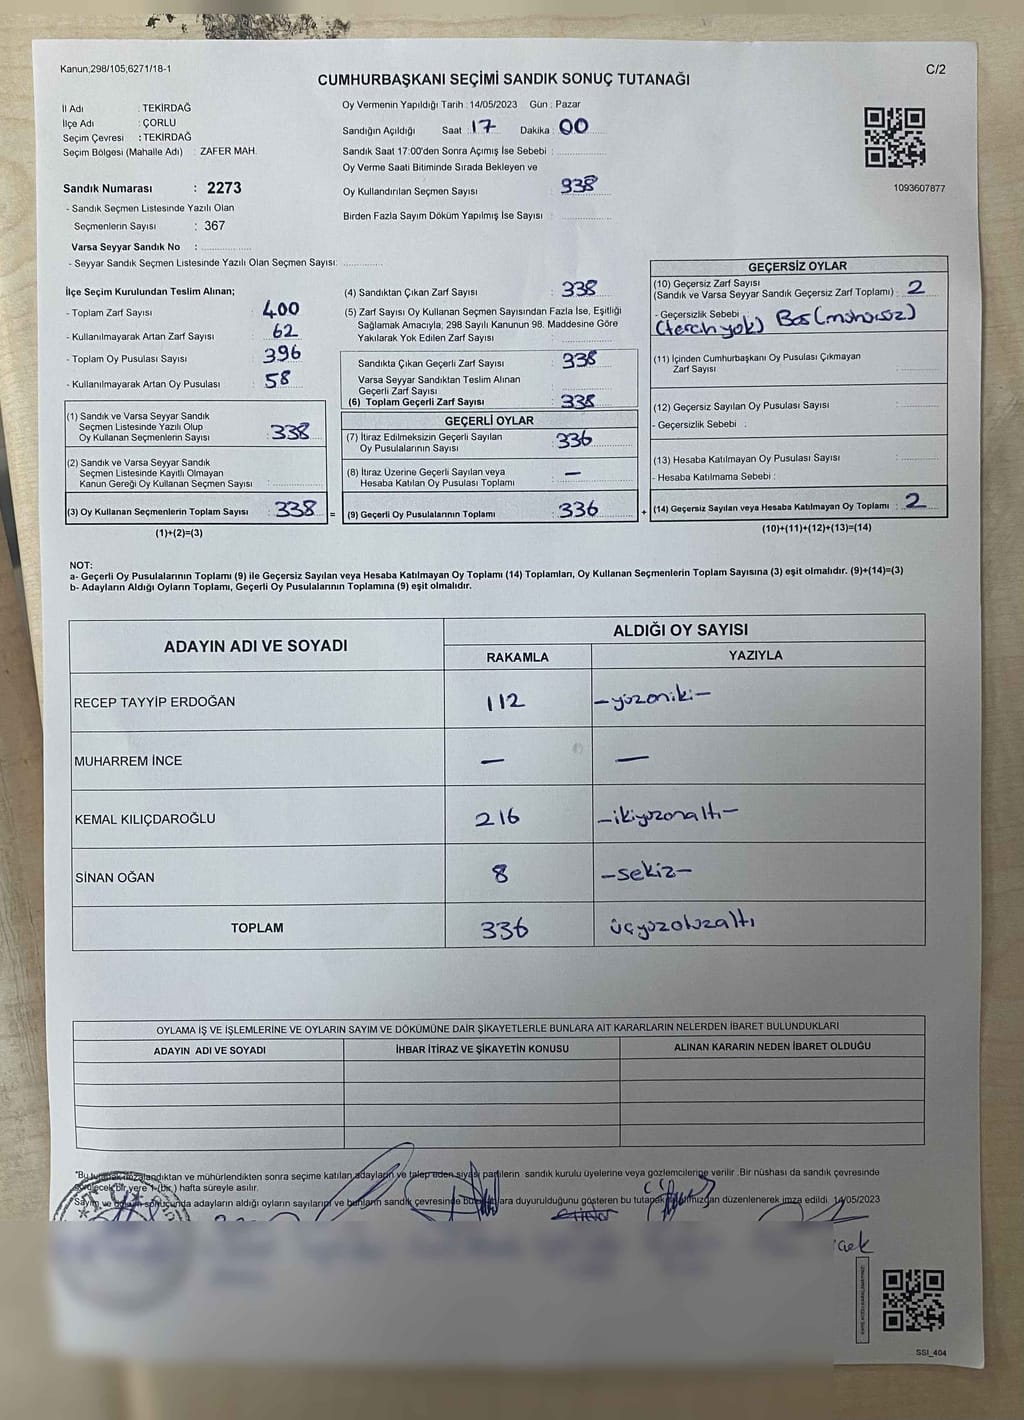 Kanun,298/105;6271/18-1
C/2
CUMHURBAŞKANI SEÇİMİ SANDIK SONUÇ TUTANAĞI
İl Adı : TEKİRDAĞ
İlçe Adı : ÇORLU
Seçim Çevresi : TEKİRDAĞ
Seçim Bölgesi (Mahalle Adı) : ZAFER MAH.
Oy Vermenin Yapıldığı Tarih : 14/05/2023 Gün : Pazar
Sandığın Açıldığı Saat : 17 Dakika : 00
Sandık Saat 17:00'den Sonra Açımış İse Sebebi :
Oy Verme Saati Bitiminde Sırada Bekleyen ve
Oy Kullandırılan Seçmen Sayısı : 338
Birden Fazla Sayım Döküm Yapılmış İse Sayısı :
1093607877
Sandık Numarası : 2273
- Sandık Seçmen Listesinde Yazılı Olan
Seçmenlerin Sayısı : 367
Varsa Seyyar Sandık No :
- Seyyar Sandık Seçmen Listesinde Yazılı Olan Seçmen Sayısı:
İlçe Seçim Kurulundan Teslim Alınan;
- Toplam Zarf Sayısı : 400
- Kullanılmayarak Artan Zarf Sayısı : 62
- Toplam Oy Pusulası Sayısı : 396
- Kullanılmayarak Artan Oy Pusulası : 58
(1) Sandık ve Varsa Seyyar Sandık
Seçmen Listesinde Yazılı Olup
Oy Kullanan Seçmenlerin Sayısı : 338
(2) Sandık ve Varsa Seyyar Sandık
Seçmen Listesinde Kayıtlı Olmayan
Kanun Gereği Oy Kullanan Seçmen Sayısı :
(3) Oy Kullanan Seçmenlerin Toplam Sayısı : 338 =
(1)+(2)=(3)
(4) Sandıktan Çıkan Zarf Sayısı : 338
(5) Zarf Sayısı Oy Kullanan Seçmen Sayısından Fazla İse, Eşitliği
Sağlamak Amacıyla; 298 Sayılı Kanunun 98. Maddesine Göre
Yakılarak Yok Edilen Zarf Sayısı :
Sandıkta Çıkan Geçerli Zarf Sayısı : 338
Varsa Seyyar Sandıktan Teslim Alınan
Geçerli Zarf Sayısı
(6) Toplam Geçerli Zarf Sayısı : 338
GEÇERLİ OYLAR
(7) İtiraz Edilmeksizin Geçerli Sayılan
Oy Pusulalarının Sayısı : 336
(8) İtiraz Üzerine Geçerli Sayılan veya
Hesaba Katılan Oy Pusulası Toplamı : —
(9) Geçerli Oy Pusulalarının Toplamı : 336 +
GEÇERSİZ OYLAR
(10) Geçersiz Zarf Sayısı
(Sandık ve Varsa Seyyar Sandık Geçersiz Zarf Toplamı) : 2
- Geçersizlik Sebebi : Boş (mühürsüz)
(tercih yok)
(11) İçinden Cumhurbaşkanı Oy Pusulası Çıkmayan
Zarf Sayısı :
(12) Geçersiz Sayılan Oy Pusulası Sayısı :
- Geçersizlik Sebebi :
(13) Hesaba Katılmayan Oy Pusulası Sayısı :
- Hesaba Katılmama Sebebi :
(14) Geçersiz Sayılan veya Hesaba Katılmayan Oy Toplamı : 2
(10)+(11)+(12)+(13)=(14)
NOT:
a- Geçerli Oy Pusulalarının Toplamı (9) ile Geçersiz Sayılan veya Hesaba Katılmayan Oy Toplamı (14) Toplamları, Oy Kullanan Seçmenlerin Toplam Sayısına (3) eşit olmalıdır. (9)+(14)=(3)
b- Adayların Aldığı Oyların Toplamı, Geçerli Oy Pusulalarının Toplamına (9) eşit olmalıdır.
ADAYIN ADI VE SOYADI
ALDIĞI OY SAYISI
RAKAMLA YAZIYLA
RECEP TAYYİP ERDOĞAN 112 —yüzoniki—
MUHARREM İNCE — —
KEMAL KILIÇDAROĞLU 216 —ikiyüzonaltı—
SİNAN OĞAN 8 —sekiz—
TOPLAM 336 üçyüzotuzaltı
OYLAMA İŞ VE İŞLEMLERİNE VE OYLARIN SAYIM VE DÖKÜMÜNE DAİR ŞİKAYETLERLE BUNLARA AİT KARARLARIN NELERDEN İBARET BULUNDUKLARI
ADAYIN ADI VE SOYADI İHBAR İTİRAZ VE ŞİKAYETİN KONUSU ALINAN KARARIN NEDEN İBARET OLDUĞU
*Bu tutanak imzalandıktan ve mühürlendikten sonra seçime katılan adayların ve talep eden siyasi partilerin sandık kurulu üyelerine veya gözlemcilerine verilir. Bir nüshası da sandık çevresinde
görülecek bir yere 1 (bir) hafta süreyle asılır.
Sayım ve döküm sonucunda adayların aldığı oyların sayılarını ve bunların sandık çevresinde duyurulduğunu gösteren bu tutanak düzenlenerek imza edildi. 14/05/2023
SSI_404